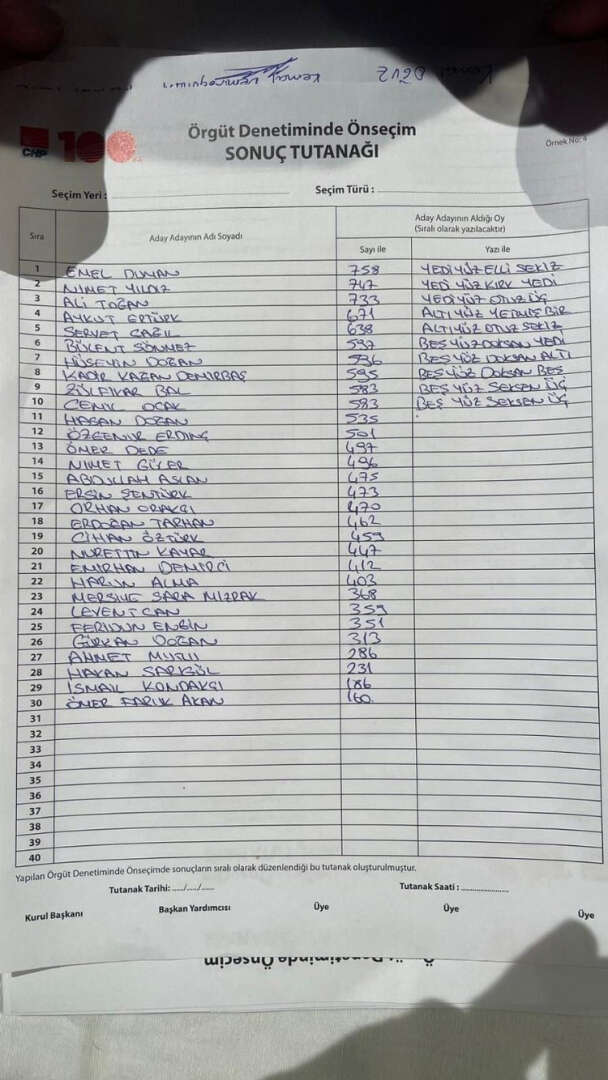 CHP 100
Örgüt Denetiminde Önseçim
SONUÇ TUTANAĞI
Örnek No: 4
Seçim Yeri :
Seçim Türü :
Sıra
Aday Adayının Adı Soyadı
Aday Adayının Aldığı Oy
(Sıralı olarak yazılacaktır)
Sayı ile
Yazı ile
1 EMEL DUMAN 758 YEDİ YÜZ ELLİ SEKİZ
2 NİMET YILDIZ 747 YEDİ YÜZ KIRK YEDİ
3 ALİ TOĞAN 733 YEDİ YÜZ OTUZ ÜÇ
4 AYKUT ERTÜRK 671 ALTI YÜZ YETMİŞ BİR
5 SERVET ÇAĞIL 638 ALTI YÜZ OTUZ SEKİZ
6 BÜLENT SÖNMEZ 597 BEŞ YÜZ DOKSAN YEDİ
7 HÜSEYİN DOĞAN 596 BEŞ YÜZ DOKSAN ALTI
8 KADİR KAZAN DEMİRBAŞ 595 BEŞ YÜZ DOKSAN BEŞ
9 ZÜLFİKAR BAL 583 BEŞ YÜZ SEKSEN ÜÇ
10 CEMİL OCAK 583 BEŞ YÜZ SEKSEN ÜÇ
11 HASAN DOĞAN 535
12 ÖZGENUR ERDİNÇ 501
13 ÖMER DEDE 497
14 NİMET GÜLER 496
15 ABDULLAH ASLAN 475
16 ERSİN ŞENTÜRK 473
17 ORHAN ORAKÇI 470
18 ERDOĞAN TARHAN 462
19 CİHAN ÖZTÜRK 459
20 NURETTİN KAYAR 447
21 EMİRHAN DEMİRCİ 412
22 HARUN ALMA 403
23 SARA MIZRAK 368
24 LEVENT CAN 359
25 FERİDUN ENGİN 351
26 GÜRKAN DOĞAN 313
27 AHMET MUSLU 286
28 HAKAN SARIGÜL 231
29 İSMAİL KONDAKÇI 186
30 ÖMER FARUK AKAN 160.
31
32
33
34
35
36
37
38
39
40
Yapılan Örgüt Denetiminde Önseçimde sonuçların sıralı olarak düzenlendiği bu tutanak oluşturulmuştur.
Tutanak Tarihi: ...../...../......
Tutanak Saati : ......................
Kurul Başkanı
Başkan Yardımcısı
Üye
Üye
Üye
Örgüt Denetiminde Önseçim